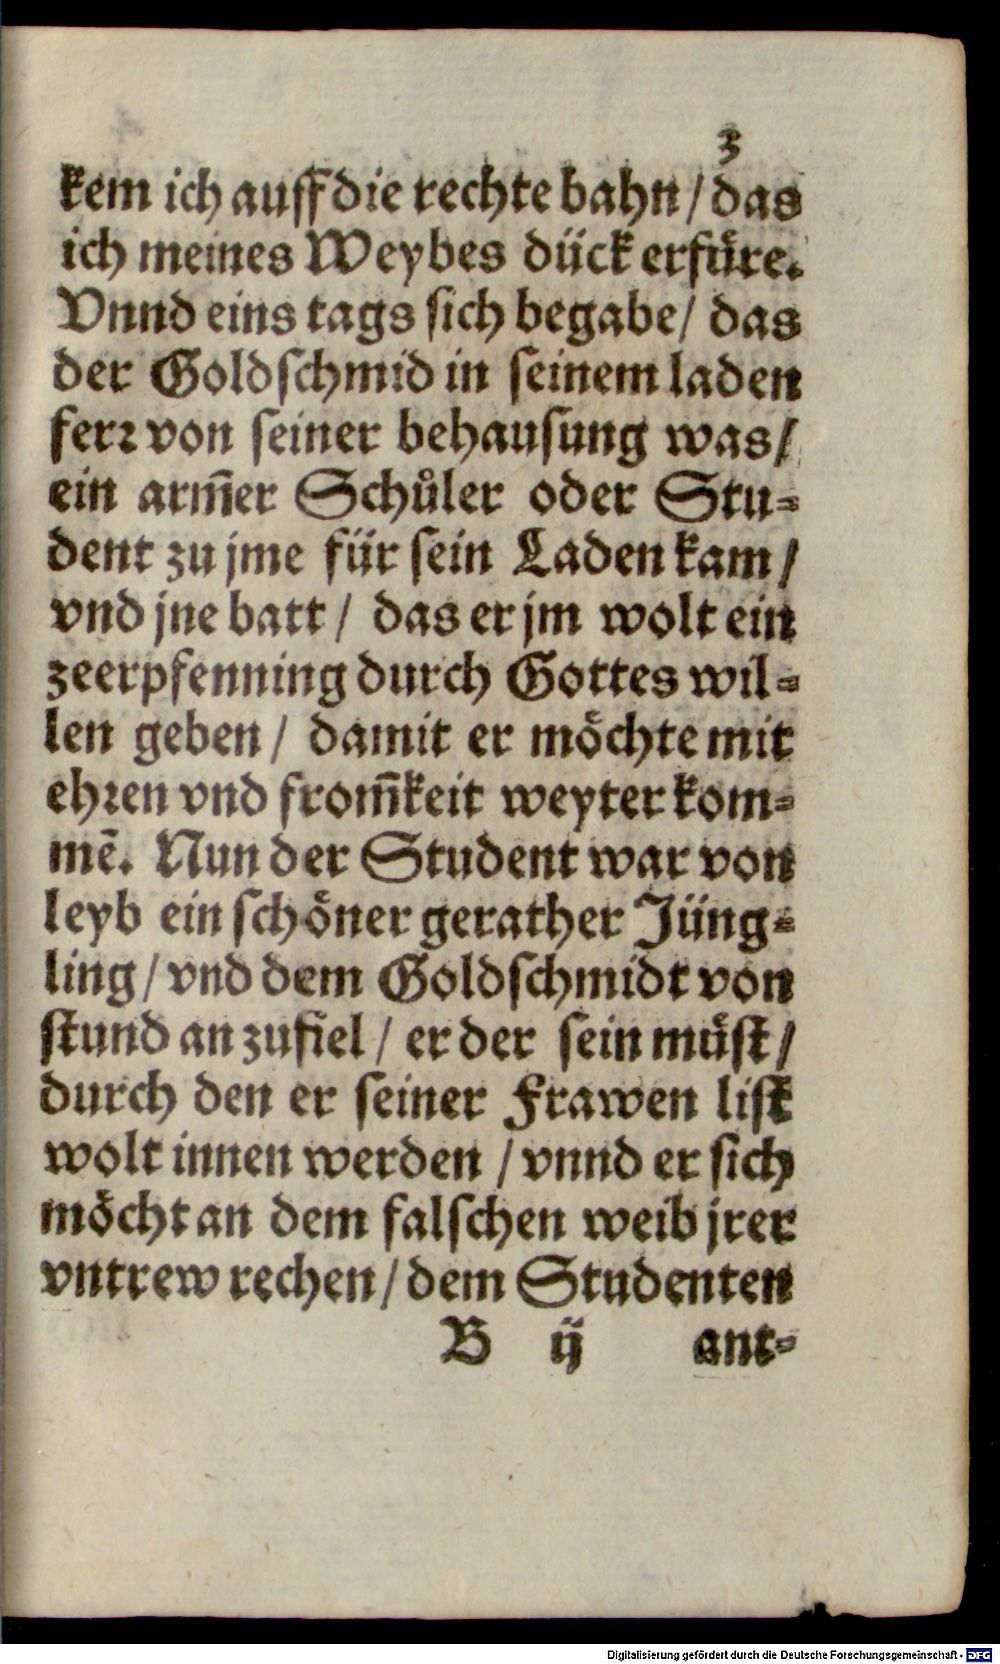 3
kem ich auff die rechte bahn / das
ich meines Weybes dück erfüre.
Vnnd eins tags sich begabe / das
der Goldschmid in seinem laden
ferr von seiner behausung was /
ein arm̄er Schůler oder Stu-
dent zu jme für sein Laden kam /
vnd jne batt / das er jm wolt ein
zeerpfenning durch Gottes wil-
len geben / damit er möchte mit
ehren vnd from̄keit weyter kom-
mē. Nun der Student war von
leyb ein schöner gerather Jüng-
ling / vnd dem Goldschmidt von
stund an zufiel / er der sein müst /
durch den er seiner Frawen list
wolt innen werden / vnnd er sich
möcht an dem falschen weib jrer
vntrew rechen / dem Studenten
B ij ant-
Digitalisierung gefördert durch die Deutsche Forschungsgemeinschaft - DFG